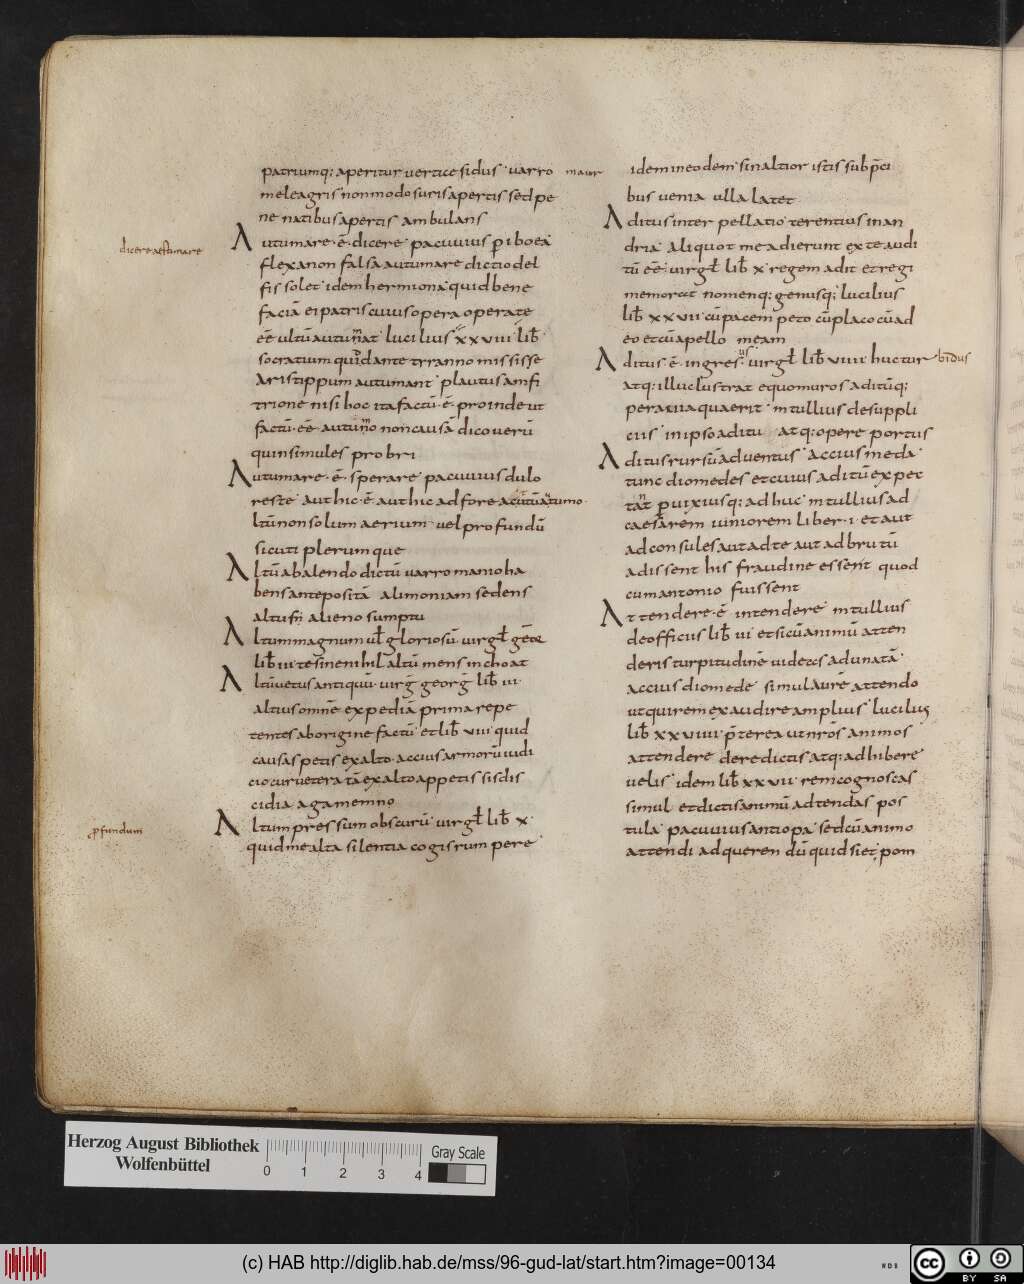 patriumq; aperitur uertice sidus· uarro
meleagris non modo suris apertis sed pe
ne natibus apertis ambulans
dicere aestimare
Autumare·ē·dicere pacuuius piboea
flexa non falsa autumare dictio del
fis solet· idem hermiona quid bene
faciā ei patris cuius opera operate
eē uultū autumat lucilius xxviii lib̄
socraticum quidā ante tyranno misisse
Aristippum autumant· plautus amfi
trione nisi hoc ita factū·ē·proinde ut
factū·eē·autumo non causā dico uerū
quin simules probri
Autumare·ē·sperare pacuuius dulo
reste aut hic·ē·aut hic adfore actutū autumo
ltū non solum aerium uel profundū
sicuti plerumque
Altū ab alendo dictū uarro manio ha
bens antepositā alimoniam sedens
altus alieno sumptu
Altum magnum uł gloriosū uirgł gēōr
lib̄ iii te sine nihil altū mens inchoat
Altū uetus antiquū uirg̅ georg̅ lib̄ iii
altius omnē expediā prima repe
tentes ab origine factū et lib̄ viii quid
causas petis ex alto· accius armorū iudi
cio cur uetera tā ex alto appetis sis dis
cidia agamemno
profundum
Altum pressum obscurū uirgł lib̄ x·
quid me alta silentia cogis rumpere
maior
idem in eodem sin altior istis sub p̄ci
bus uenia ulla latet
Aditus interpellatio terentius in an
dria Aliquot me adierunt ex te audi
tū eē· uirgł lib̄ x· regem adit et regi
memorat nomenq; genusq; lucilius
lib̄ xxvii cū pacem peto cū placo cū ad
eo et cū apello meam
Aditus·ē·ingressus uirgł lib̄ viiii huc tur
bidus
atq; illuc lustrat equo muros aditūq;
per auia quaerit· m tullius de suppli
ciis in ipso aditu atq: ore portus
Aditus rursū aduentus· accius meda·
tunc diomedes et cuius aditū expec
tant peruixiusq; adhuc m tullius ad
caesarem iuniorem liber·i·et aut
ad consules aut ad te aut ad brutū
adissent his fraudine essent quod
cum antonio fuissent
Attendere·ē·intendere m tullius
de officiis lib̄ iii et si cū animū atten
deris turpitudinē uideas adunatā·
accius diomede simul aurē attendo
ut quirem exaudire amplius· lucilius
lib̄ xxviiii p̄terea ut nr̄os animos
attendere dere dictis atq; adhibere
uelis· idem lib̄ xxvii· rem cognoscas
simul et dictis animū adtendas pos
tula· pacuuius antiopa sed cū animo
attendi ad queren dū quid siet· pom
Herzog August Bibliothek
Wolfenbüttel
0 1 2 3 4
Gray Scale
(c) HAB http://diglib.hab.de/mss/96-gud-lat/start.htm?image=00134
WDB
cc BY SA